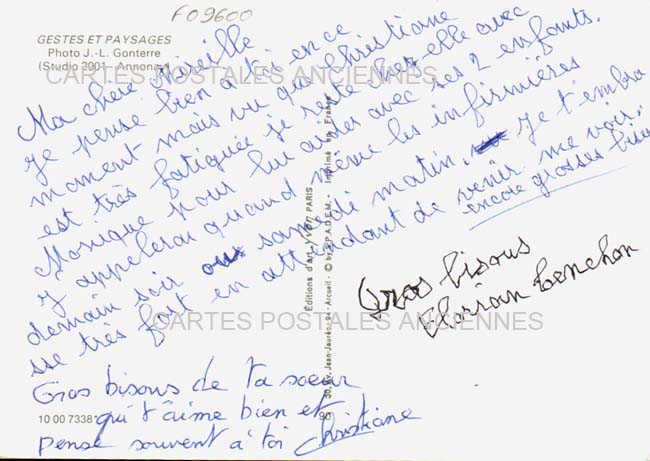 F09600
GESTES ET PAYSAGES
Photo J.-L. Gonterre
(Studio 2001 - Annonay)
CARTES POSTALES ANCIENNES
Ma chère Mireille
je pense bien à toi en ce
moment mais vu que Christiane
est très fatiguée je reste chez elle avec
Monique pour lui aider avec ses 2 enfants.
J'appelerai quand même les infirmières
demain soir ou samedi matin. Je t'embra
sse très fort en attendant de venir me voir.
encore grosses bises
Gros bisous
Florian
CARTES POSTALES ANCIENNES
Gros bisous de ta soeur
qui t'aime bien et
pense souvent à toi Christiane
10 00 7338
90
Editions d'art YVON PARIS
30, Av. Jean-Jaurès - 94-Arcueil - © by S.P.A.D.E.M. - Imprimé en France